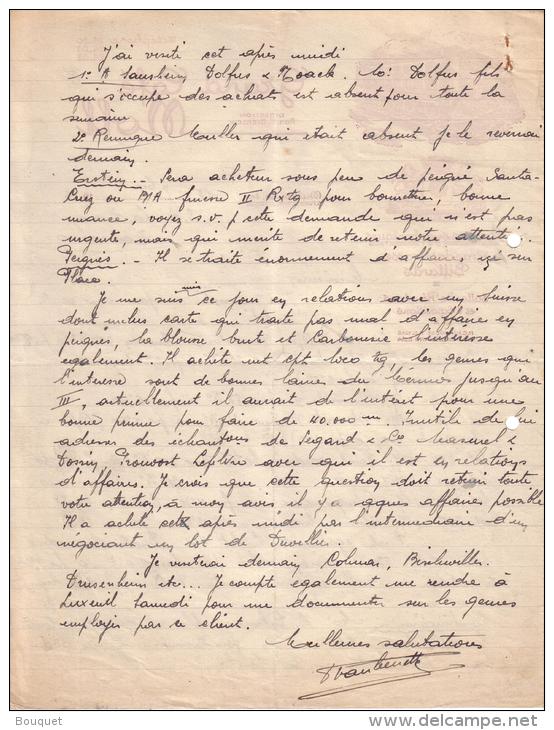 J'ai visité cet après midi
1º A Sausheim Dolfus & Noack. Mr Dolfus fils
qui s'occupe des achats est absent pour toute la
semaine
2º Remingue Muller qui etait absent je le reverrai
demain.
Erstein. - Sera acheteur sous peu de peigné Santa-
Cruz ou B/A finesse II pour bonneterie, bonne
nuance, voyez s.v.p cette demande qui n'est pas
urgente, mais qui mérite de retenir notre attention
Peignés. - Il se traite enormement d'affaires, ici sur
Place.
Je me suis mis ce jour en relations avec un suisse
dont inclus carte qui traite pas mal d'affaires en
peignés, la blousse brute et Carbonisée l'intéresse
egalement. Il achète net cpt loco, les genres qui
l'interesse sont de bonnes laines du jusqu'au
III, actuellement il aurait de l'intérêt pour une
bonne prime pour faire de 40.000 m. Inutile de lui
adresser des echantillons de Segard & Co Masurel &
Dossin, Prouvost Lefebvre avec qui il est en relations
d'affaires. Je crois que cette question doit retenir toute
votre attention, à mon avis il y a affaires possible
Il a acheté cet après midi par l'intermediaire d'un
négociant un lot de Duvillier.
Je visiterai demain Colmar, Bischwiller.
Drusenheim etc... Je compte egalement me rendre à
Luxeuil Samedi pour me documenter sur les genres
employés par ce client.
Meilleures salutations
Bouquet
www.delcampe.net